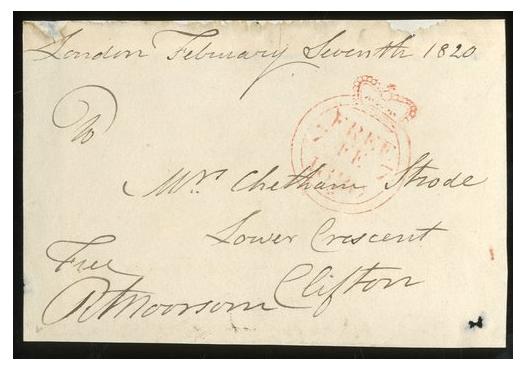 London February Seventh 1820
To
FREE
7 FE 7
1820
Mrs. Chetham Strode
Lower Crescent
Clifton
Free
R Moorsom